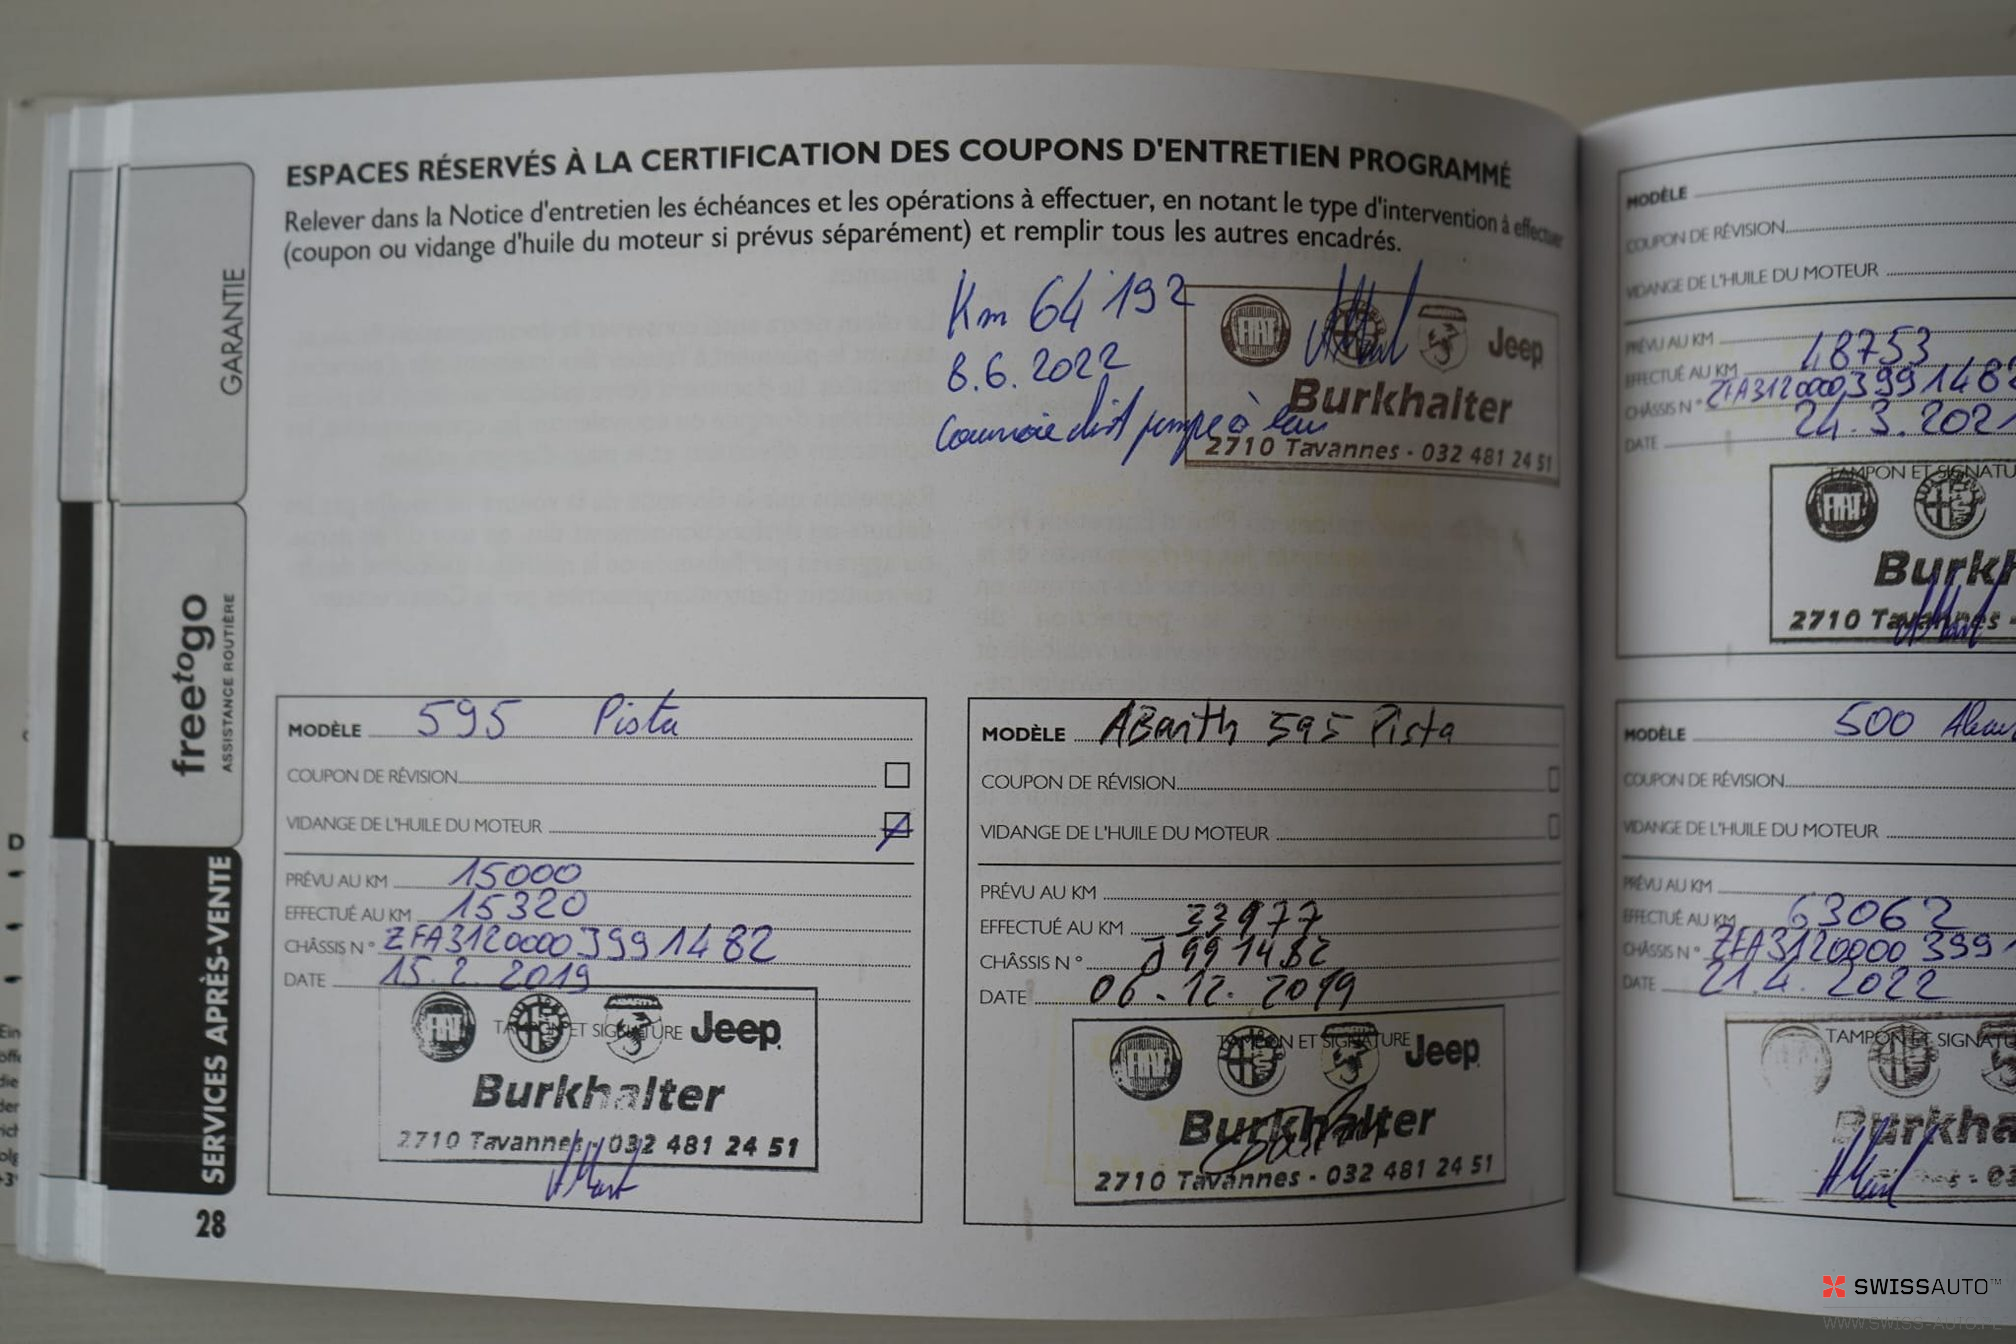 ESPACES RÉSERVÉS À LA CERTIFICATION DES COUPONS D'ENTRETIEN PROGRAMMÉ
Relever dans la Notice d'entretien les échéances et les opérations à effectuer, en notant le type d'intervention à effectuer
(coupon ou vidange d'huile du moteur si prévus séparément) et remplir tous les autres encadrés.
Km 64'192
8.6.2022
Courroie dist pompe à eau
FIAT Jeep
Burkhalter
2710 Tavannes - 032 481 24 51
GARANTIE
freetogo
ASSISTANCE ROUTIÈRE
SERVICES APRÈS-VENTE
28
MODÈLE 595 Pista
COUPON DE RÉVISION
VIDANGE DE L'HUILE DU MOTEUR
PRÉVU AU KM 15000
EFFECTUÉ AU KM 15320
CHÂSSIS N° ZFA31200003991482
DATE 15.2.2019
TAMPON ET SIGNATURE
FIAT ABARTH Jeep
Burkhalter
2710 Tavannes - 032 481 24 51
MODÈLE ABarth 595 Pista
COUPON DE RÉVISION
VIDANGE DE L'HUILE DU MOTEUR
PRÉVU AU KM
EFFECTUÉ AU KM 33977
CHÂSSIS N° J991482
DATE 06.12.2019
TAMPON ET SIGNATURE
FIAT Jeep
Burkhalter
2710 Tavannes - 032 481 24 51
MODÈLE
COUPON DE RÉVISION
VIDANGE DE L'HUILE DU MOTEUR
PRÉVU AU KM
EFFECTUÉ AU KM 48753
CHÂSSIS N° ZFA3120000399148
DATE 24.3.2021
TAMPON ET SIGNATU
FIAT
Burkh
2710 Tavannes -
MODÈLE 500
COUPON DE RÉVISION
VIDANGE DE L'HUILE DU MOTEUR
PRÉVU AU KM
EFFECTUÉ AU KM 63062
CHÂSSIS N° ZFA31200003991
DATE 21.4.2022
TAMPON ET SIGNATU
Burkha
SWISSAUTO™